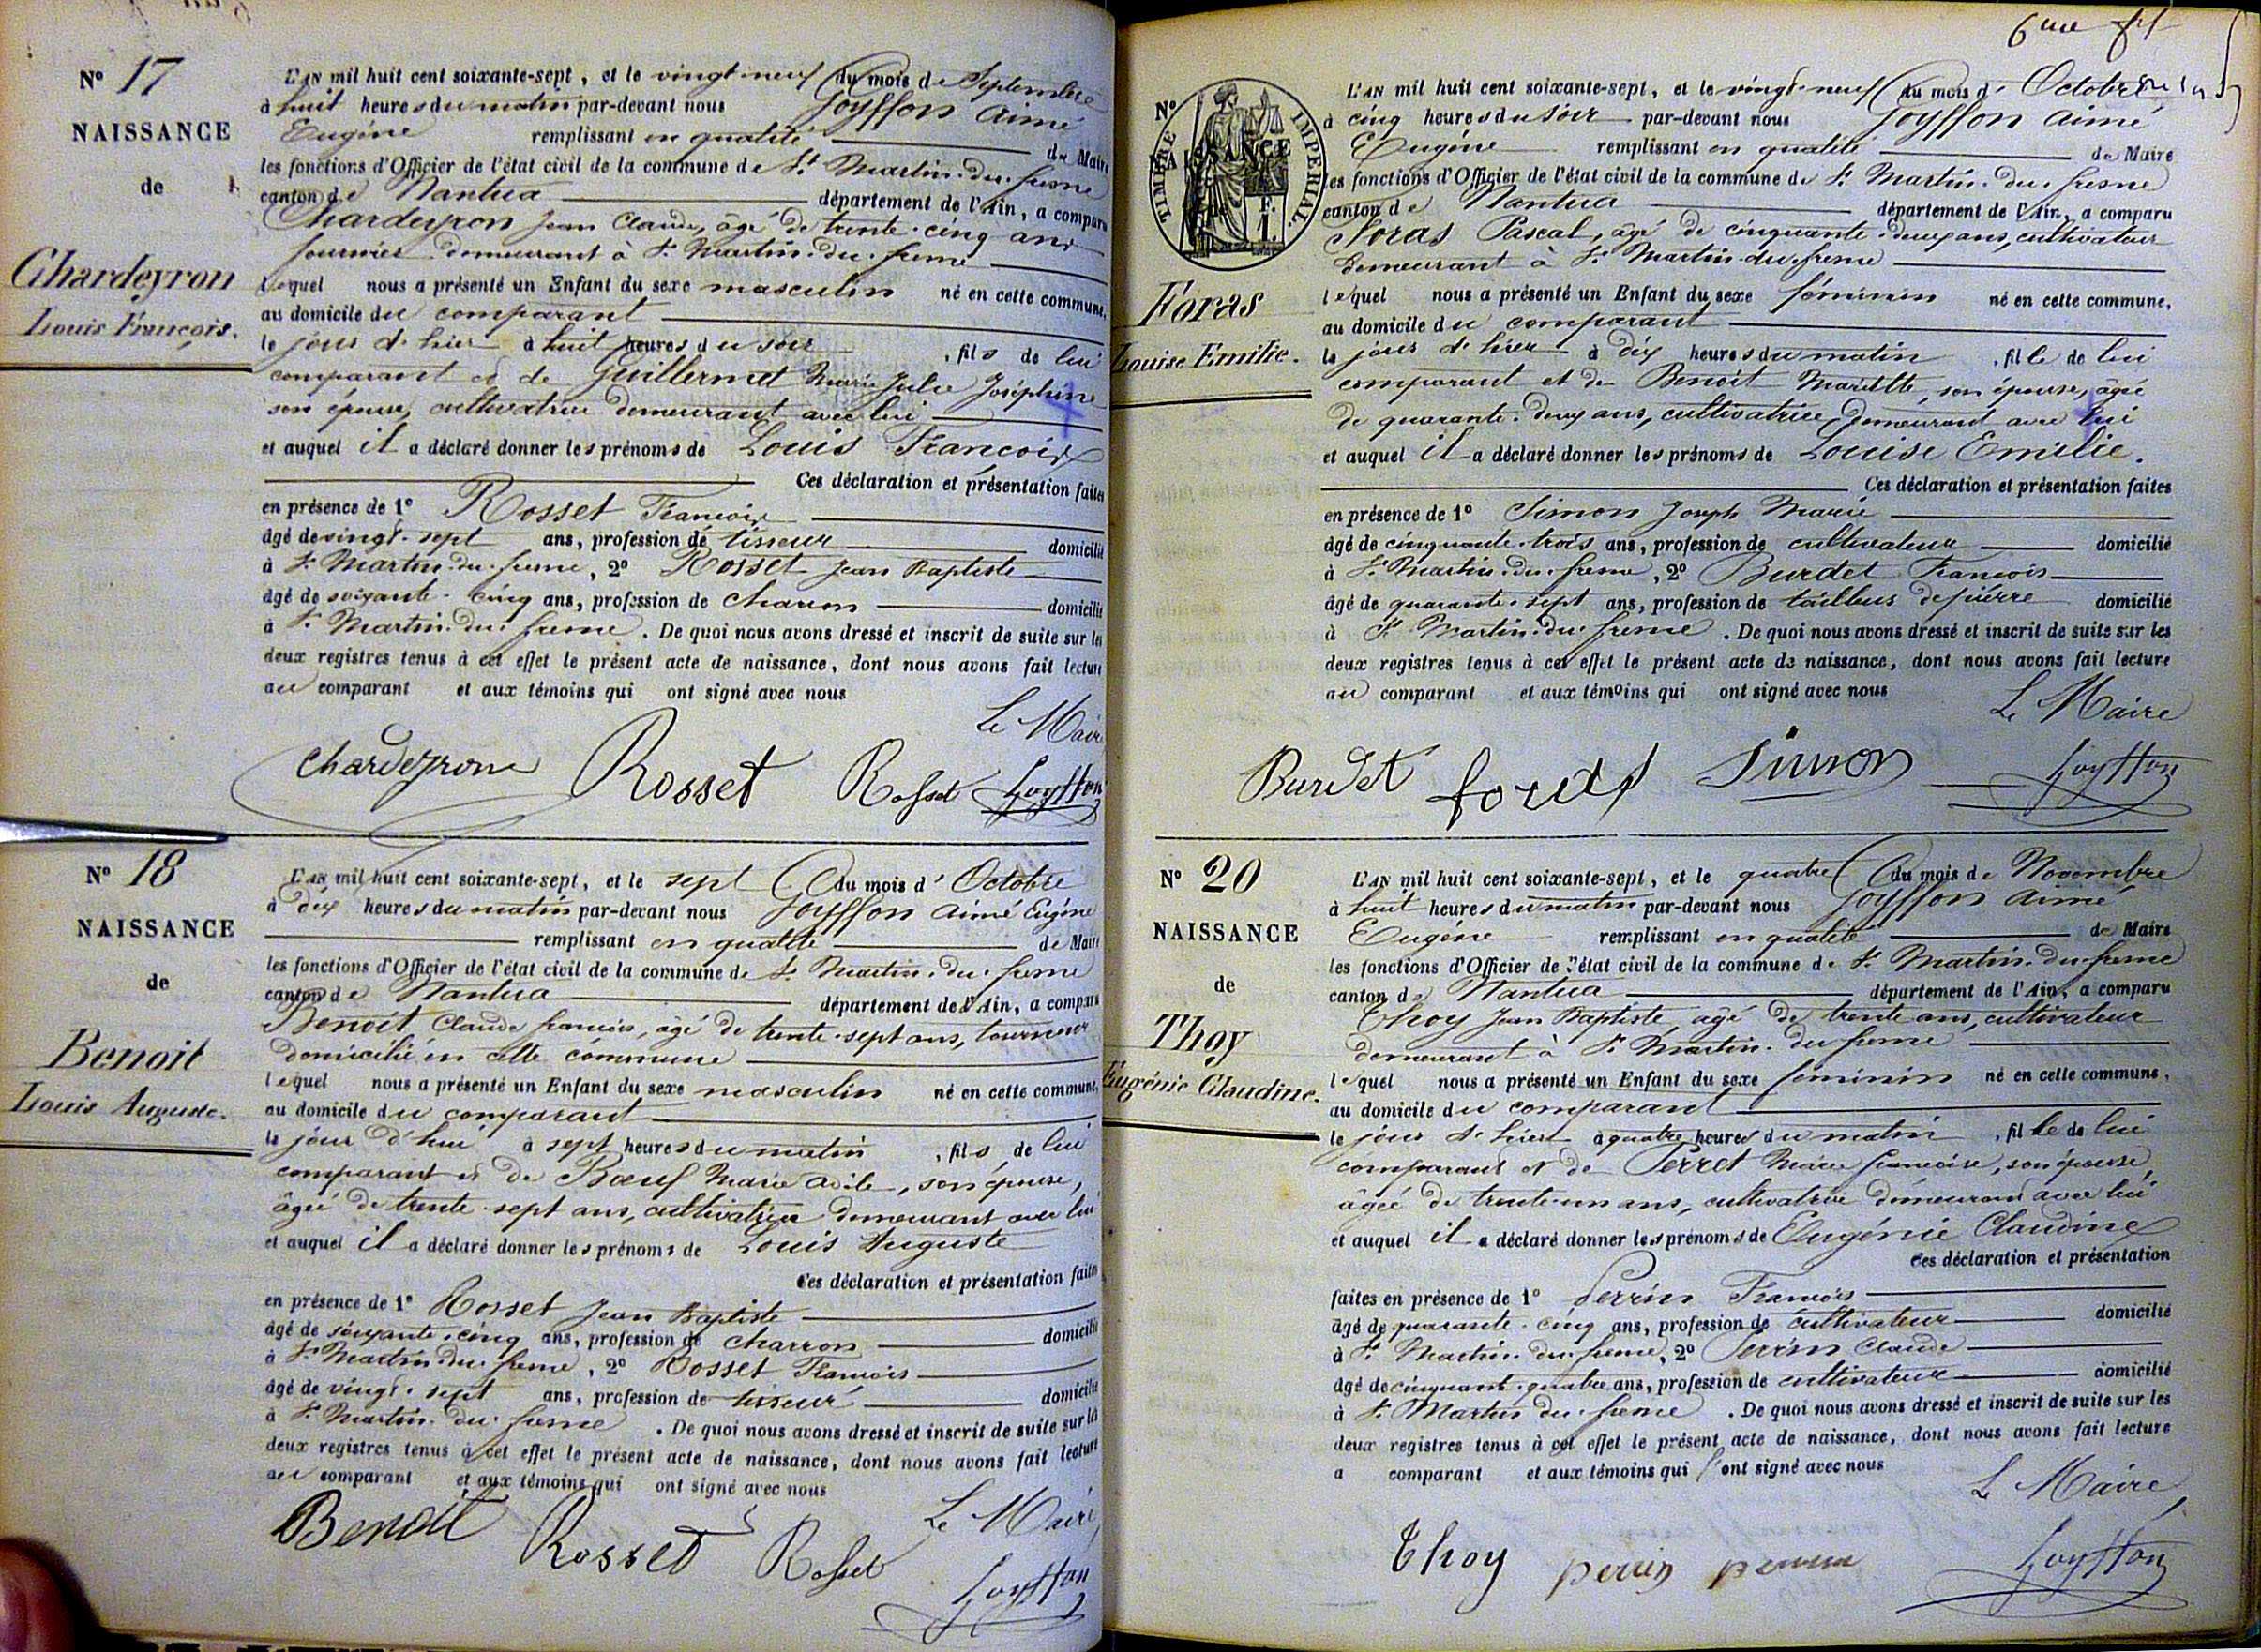 Nº 17
NAISSANCE
de
Chardeyron
Louis François.
L'AN mil huit cent soixante-sept, et le vingt-neuf du mois de Septembre
à huit heures du matin par-devant nous Goyffon Aimé
Eugène remplissant en qualité de Maire
les fonctions d'Officier de l'état civil de la commune de St Martin-du-fresne
canton de Nantua département de l'Ain, a comparu
Chardeyron Jean Claude, âgé de trente-cinq ans
demeurant à St Martin-du-fresne
lequel nous a présenté un Enfant du sexe masculin né en cette commune,
au domicile du comparant
le jour d'hier à huit heures du soir, fils de lui
comparant et de Guillermet Marie Julie Joséphine
son épouse, cultivatrice demeurant avec lui
et auquel il a déclaré donner les prénoms de Louis François
Ces déclaration et présentation faites
en présence de 1º Rosset François
âgé de vingt-sept ans, profession de tisseur domicilié
à St Martin-du-fresne, 2º Rosset Jean Baptiste
âgé de soixante-cinq ans, profession de charron domicilié
à St Martin-du-fresne. De quoi nous avons dressé et inscrit de suite sur les
deux registres tenus à cet effet le présent acte de naissance, dont nous avons fait lecture
au comparant et aux témoins qui ont signé avec nous
Le Maire
Chardeyron Rosset Rosset Goyffon
Nº 18
NAISSANCE
de
Benoit
Louis Auguste.
L'AN mil huit cent soixante-sept, et le sept du mois d'Octobre
à dix heures du matin par-devant nous Goyffon Aimé Eugène
remplissant en qualité de Maire
les fonctions d'Officier de l'état civil de la commune de St Martin-du-fresne
canton de Nantua département de l'Ain, a comparu
Benoit Claude françois, âgé de trente-sept ans, tourneur
domicilié en cette commune
lequel nous a présenté un Enfant du sexe masculin né en cette commune,
au domicile du comparant
le jour d'hui à sept heures du matin, fils de lui
comparant et de Bœuf Marie, son épouse,
âgée de trente-sept ans, cultivatrice demeurant avec lui
et auquel il a déclaré donner les prénoms de Louis Auguste
Ces déclaration et présentation faites
en présence de 1º Rosset Jean Baptiste
âgé de soixante-cinq ans, profession de charron domicilié
à St Martin-du-fresne, 2º Rosset François
âgé de vingt-sept ans, profession de tisseur domicilié
à St Martin-du-fresne. De quoi nous avons dressé et inscrit de suite sur les
deux registres tenus à cet effet le présent acte de naissance, dont nous avons fait lecture
au comparant et aux témoins qui ont signé avec nous
Le Maire
Benoit Rosset Rosset
Goyffon
6me
Nº
NAISSANCE
TIMBRE IMPERIAL
1 F.
de
Foras
Louise Emilie.
L'AN mil huit cent soixante-sept, et le vingt-neuf du mois d'Octobre
à cinq heures du soir par-devant nous Goyffon Aimé
Eugène remplissant en qualité de Maire
les fonctions d'Officier de l'état civil de la commune de St Martin-du-fresne
canton de Nantua département de l'Ain, a comparu
Foras Pascal, âgé de cinquante-deux ans, cultivateur
demeurant à St Martin-du-fresne
lequel nous a présenté un Enfant du sexe féminin né en cette commune,
au domicile du comparant
le jour d'hier à dix heures du matin, fille de lui
comparant et de Benoit Mariette, son épouse, âgée
de quarante-deux ans, cultivatrice, demeurant avec lui
et auquel il a déclaré donner les prénoms de Louise Emilie.
Ces déclaration et présentation faites
en présence de 1º Simon Joseph Marie
âgé de cinquante-trois ans, profession de cultivateur domicilié
à St Martin-du-fresne, 2º Burdet François
âgé de quarante-sept ans, profession de tailleur de pierre domicilié
à St Martin-du-fresne. De quoi nous avons dressé et inscrit de suite sur les
deux registres tenus à cet effet le présent acte de naissance, dont nous avons fait lecture
au comparant et aux témoins qui ont signé avec nous
Le Maire
Burdet foras Simon Goyffon
Nº 20
NAISSANCE
de
Thoy
Eugénie Claudine.
L'AN mil huit cent soixante-sept, et le quatre du mois de Novembre
à huit heures du matin par-devant nous Goyffon Aimé
Eugène remplissant en qualité de Maire
les fonctions d'Officier de l'état civil de la commune de St Martin-du-fresne
canton de Nantua département de l'Ain, a comparu
Thoy Jean Baptiste, âgé de trente ans, cultivateur
demeurant à St Martin-du-fresne
lequel nous a présenté un Enfant du sexe féminin né en cette commune,
au domicile du comparant
le jour d'hier à quatre heures du matin, fille de lui
comparant et de Perret Marie françoise, son épouse,
âgée de trente-un ans, cultivatrice demeurant avec lui
et auquel il a déclaré donner les prénoms de Eugénie Claudine
Ces déclaration et présentation
faites en présence de 1º Perrin François
âgé de quarante-cinq ans, profession de cultivateur domicilié
à St Martin-du-fresne, 2º Perrin Claude
âgé de cinquante-quatre ans, profession de cultivateur domicilié
à St Martin-du-fresne. De quoi nous avons dressé et inscrit de suite sur les
deux registres tenus à cet effet le présent acte de naissance, dont nous avons fait lecture
a comparant et aux témoins qui ont signé avec nous
Le Maire
Thoy perrin perrin Goyffon